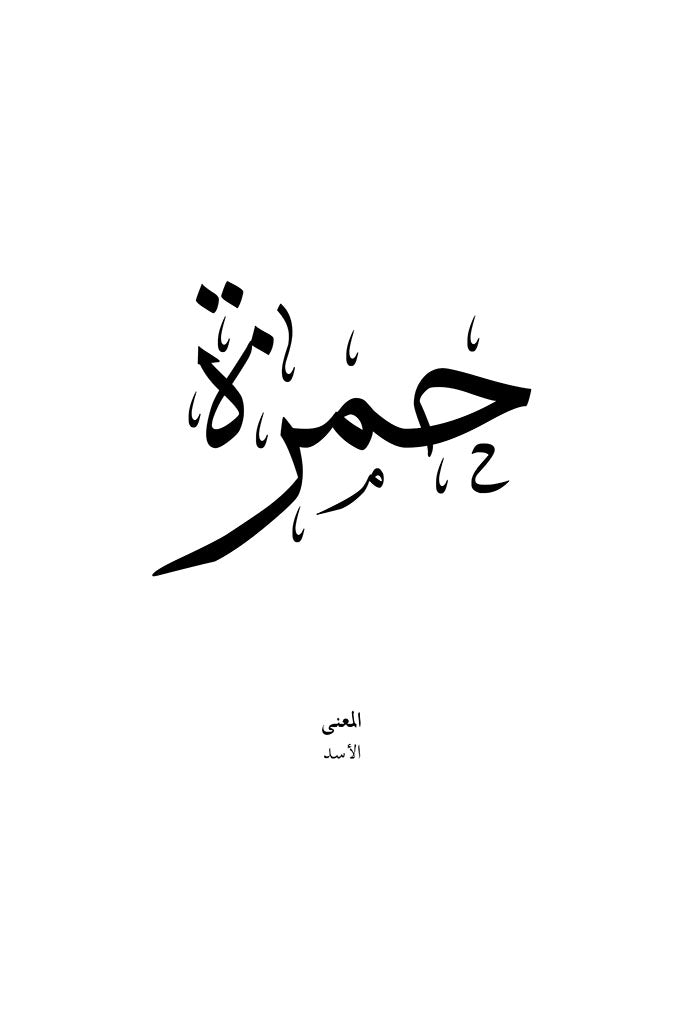 حمزة
المعنى
الأسد